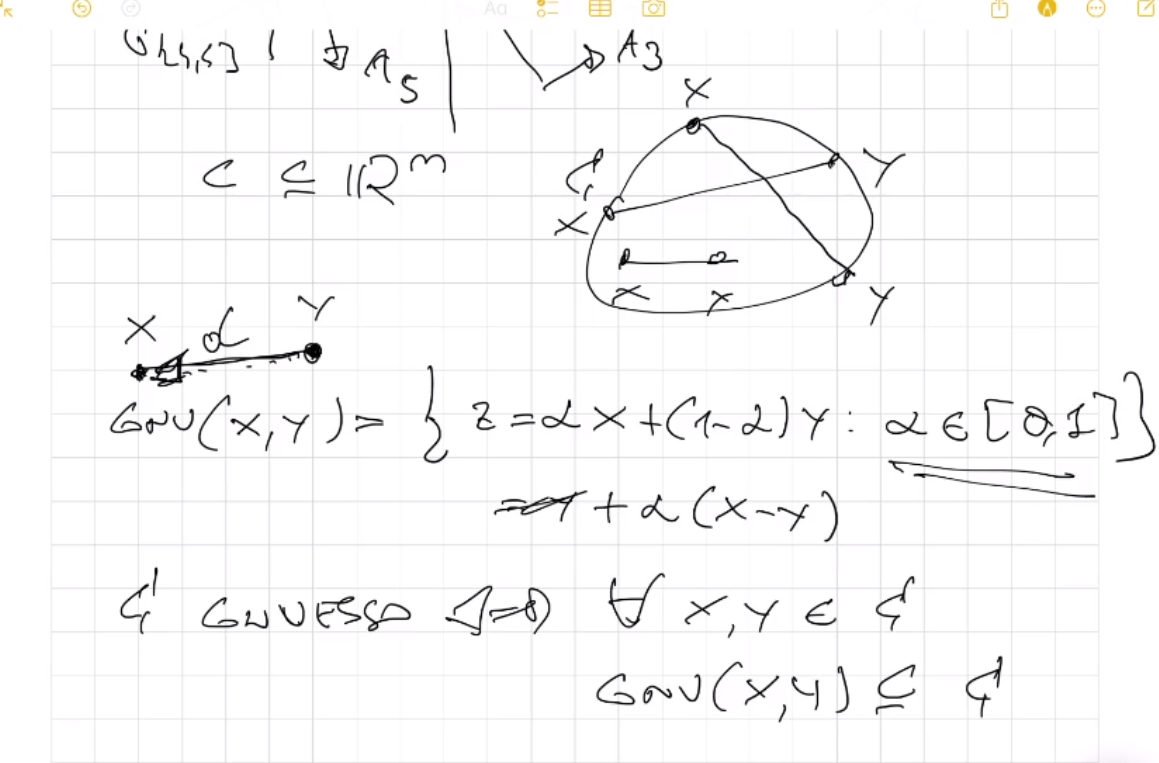 A3
A5
C ⊆ ℝⁿ
X
Y
C
X
X Y
Y
X d Y
CONV(X,Y) = { z = αX + (1-α)Y : α ∈ [0,1] }
= Y + α(X-Y)
C CONVESSO ⇔ ∀ X,Y ∈ C
CONV(X,Y) ⊆ C